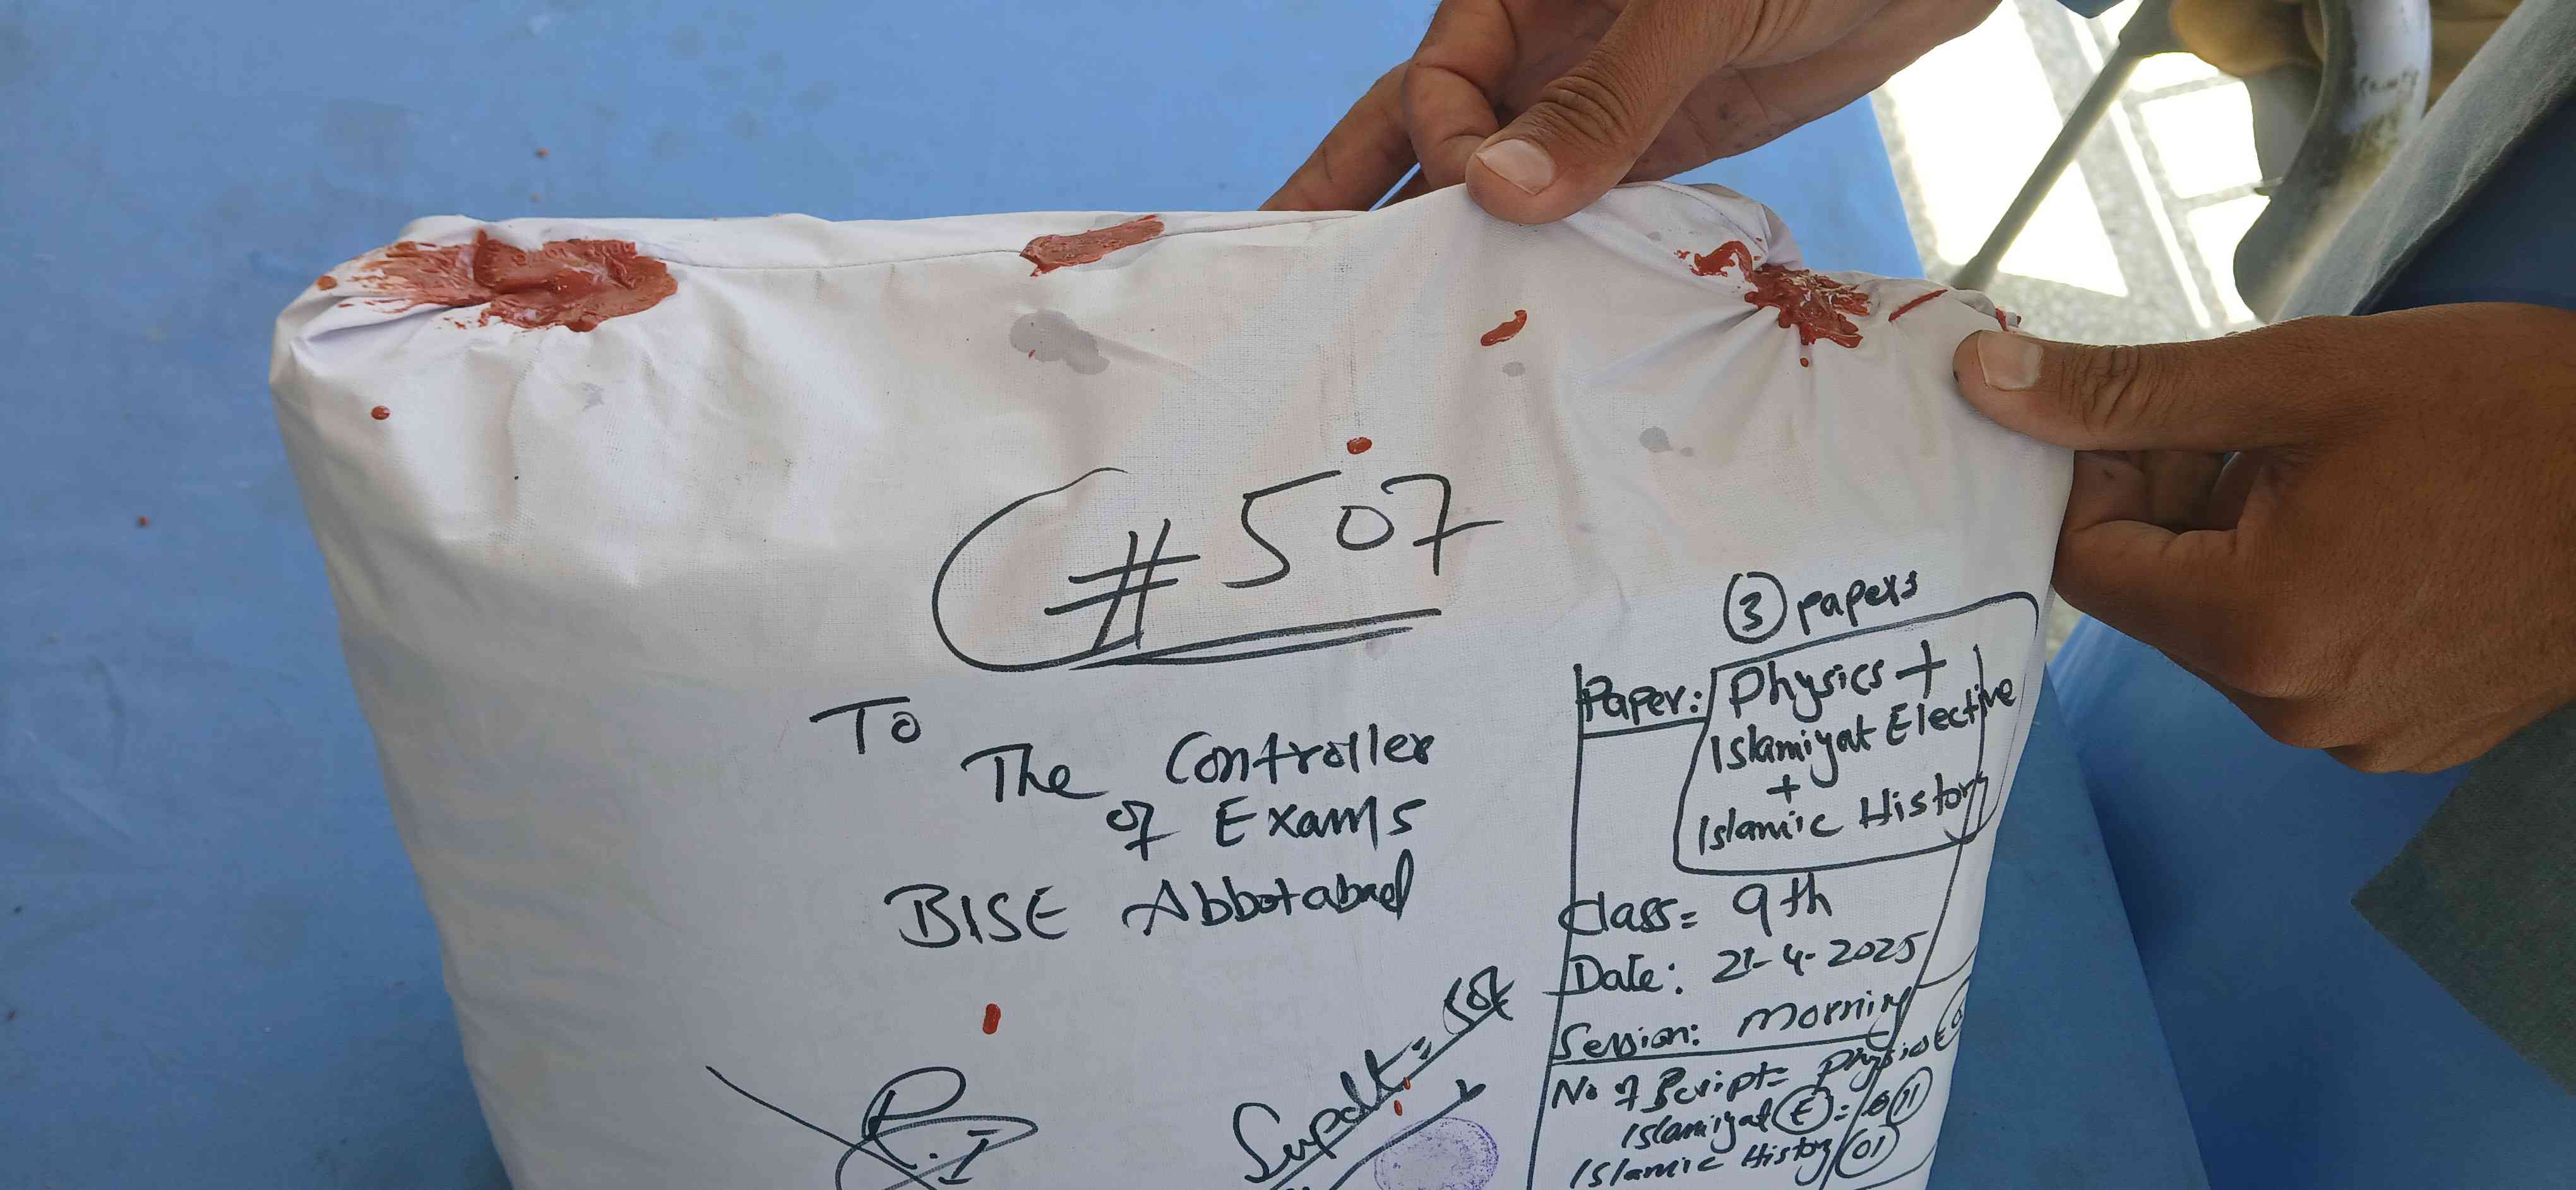 #507
To
The Controller
of Exams
BISE Abbotabad
③ papers
Paper: Physics +
Islamiyat Elective
+
Islamic History
Class= 9th
Date: 21-4-2025
Session: Morning
No of Script= Physics
Islamiyat (E)= 11
Islamic History 01
Supdt:
R.I